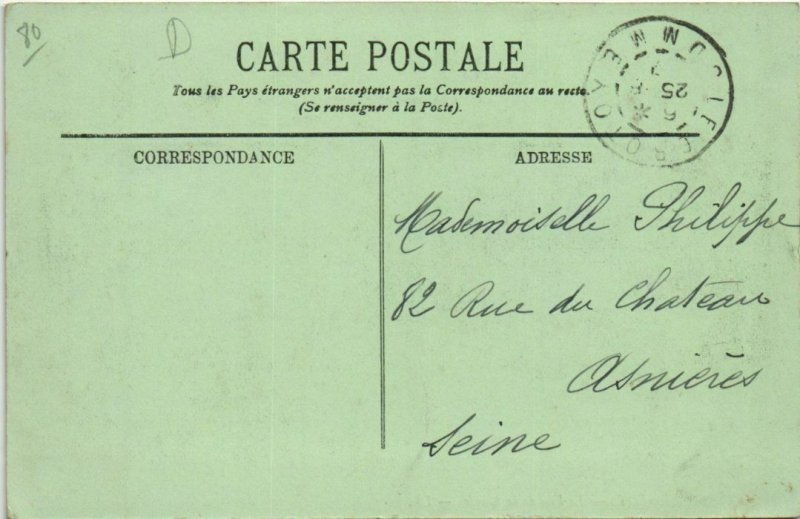 80
D
CARTE POSTALE
Tous les Pays étrangers n'acceptent pas la Correspondance au recto.
(Se renseigner à la Poste).
CORRESPONDANCE
ADRESSE
Mademoiselle Philippe
82 Rue du Chateau
Asnières
Seine
25